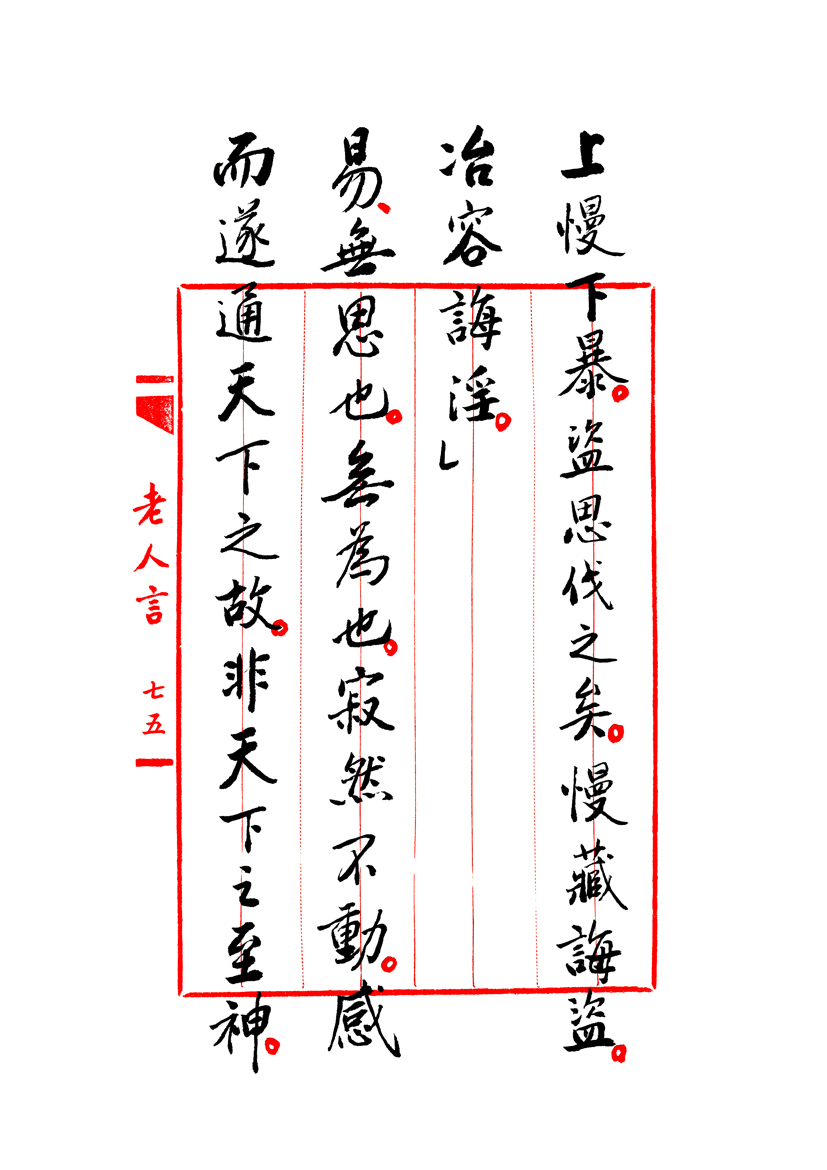 上慢下暴。盜思伐之矣。慢藏誨盜。
冶容誨淫。」
易、無思也。無為也。寂然不動。感
而遂通天下之故。非天下之至神。
老人言 七五